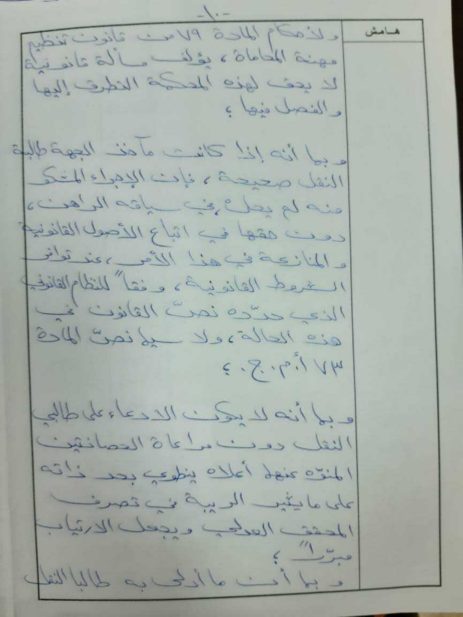 -١٠-
هامش
ولأحكام المادة ٧٩ من قانون تنظيم
مهنة المحاماة، يؤلف مسألة قانونية
لا يعود لهذه المحكمة التطرق إليها
والفصل فيها؛
وبما أنه إذا كانت مآخذ الجهة طالبة
النقل صحيحة، فإن الإجراء المشكو
منه لم يحل، في سياقه الراهن،
دون حقها في اتباع الأصول القانونية
والمنازعة في هذا الأمر، عند توافر
الشروط القانونية، وفقاً للنظام القانوني
الذي حدّده نصّ القانون في
هذه الحالة، ولا سيما نصّ المادة
٧٣ أ.م.ج.؛
وبما أنه لا يكون الادعاء على طالبي
النقل دون مراعاة الحصانتين
المنوّه عنهما أعلاه ينطوي بحد ذاته
على ما يثير الريبة في تصرف
المحقق العدلي ويجعل الارتياب
مبرّراً؛
وبما أن ما أدلى به طالبا النقل